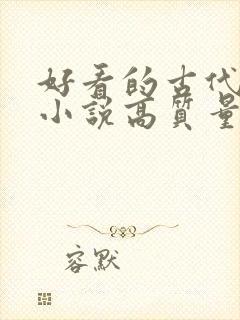 好看的古代
小说高質量
容默